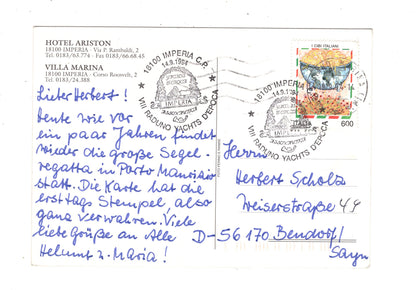 HOTEL ARISTON
18100 IMPERIA - Via P. Rambaldi, 2
Tel. 0183/63.774 - Fax 0183/66.68.45
VILLA MARINA
18100 IMPERIA - Corso Roosvelt, 2
Tel. 0183/24.388
Lieber Herbert!
Heute wie vor
ein paar Jahren findet
wieder die große Segel-
regatta in Porto Maurizio
statt. Die Karte hat die
ersttags Stempel, also
ganz verwahren. Viele
liebe Grüße an Alle
Helmut u. Maria!
18100 IMPERIA C.P.
14.9.1994
IMPERIA
VIII RADUNO YACHTS D'EPOCA
18100 IMPERIA
14.9.
IMPERIA
VIII RADUNO YACHTS D'EPOCA
I CIBI ITALIANI
ITALIA
600
Herrn
Herbert Scholz
Weiserstraße 44
D-56170 Bendorf/
Sayn